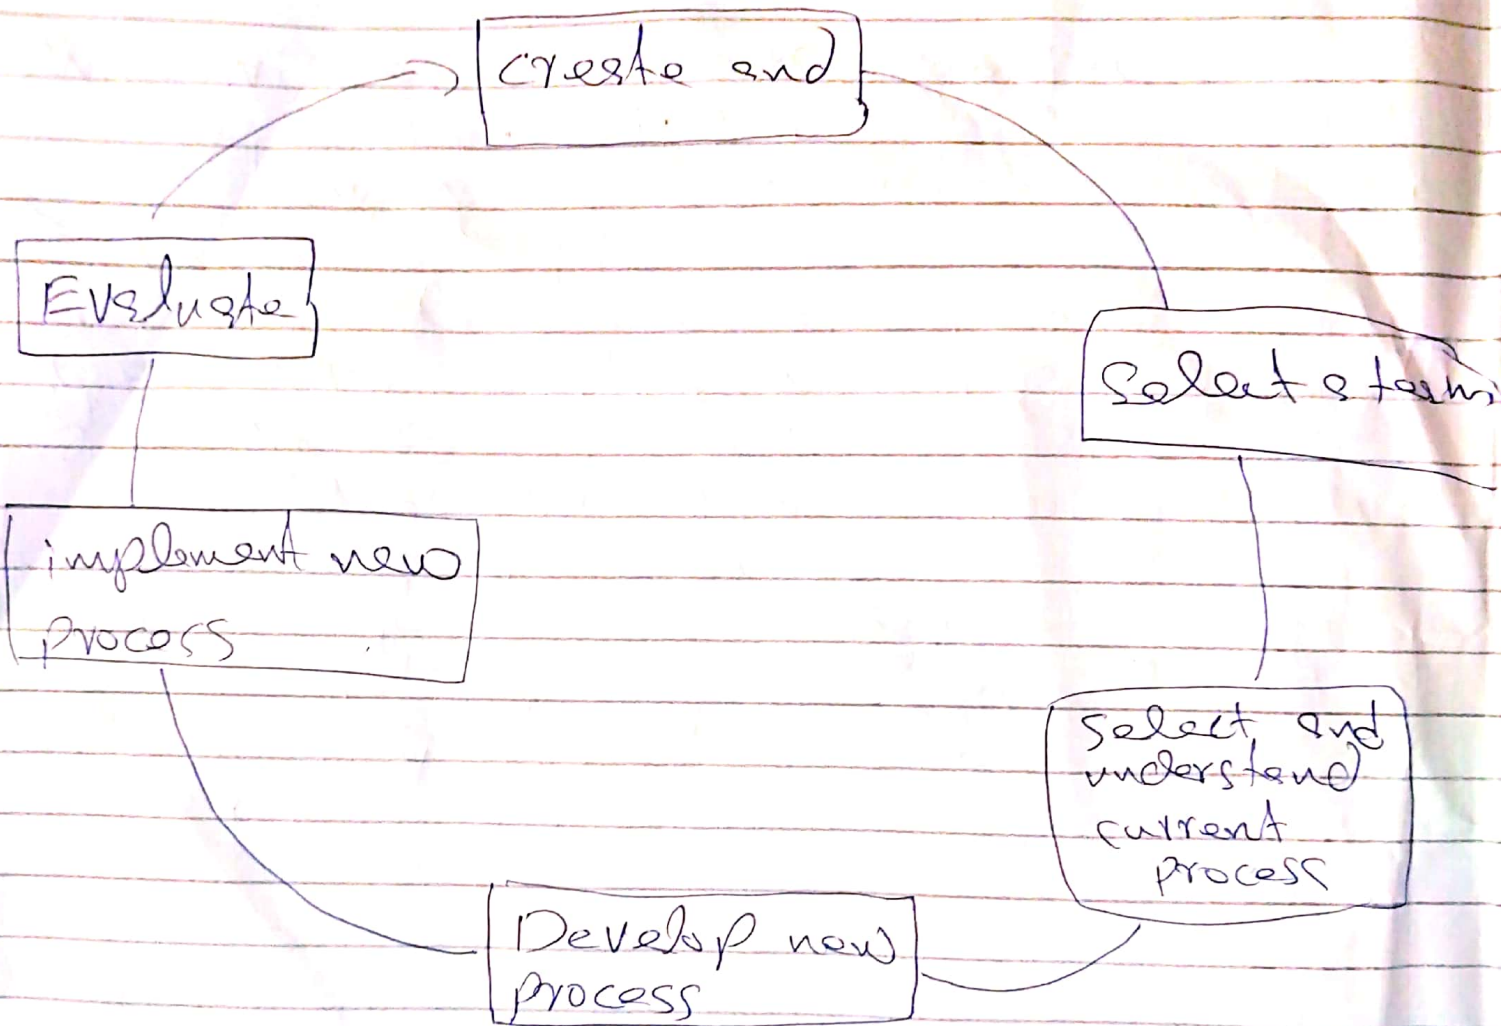 Create and
Select a team
Select and
understand
current
process
Develop new
process
implement new
process
Evaluate